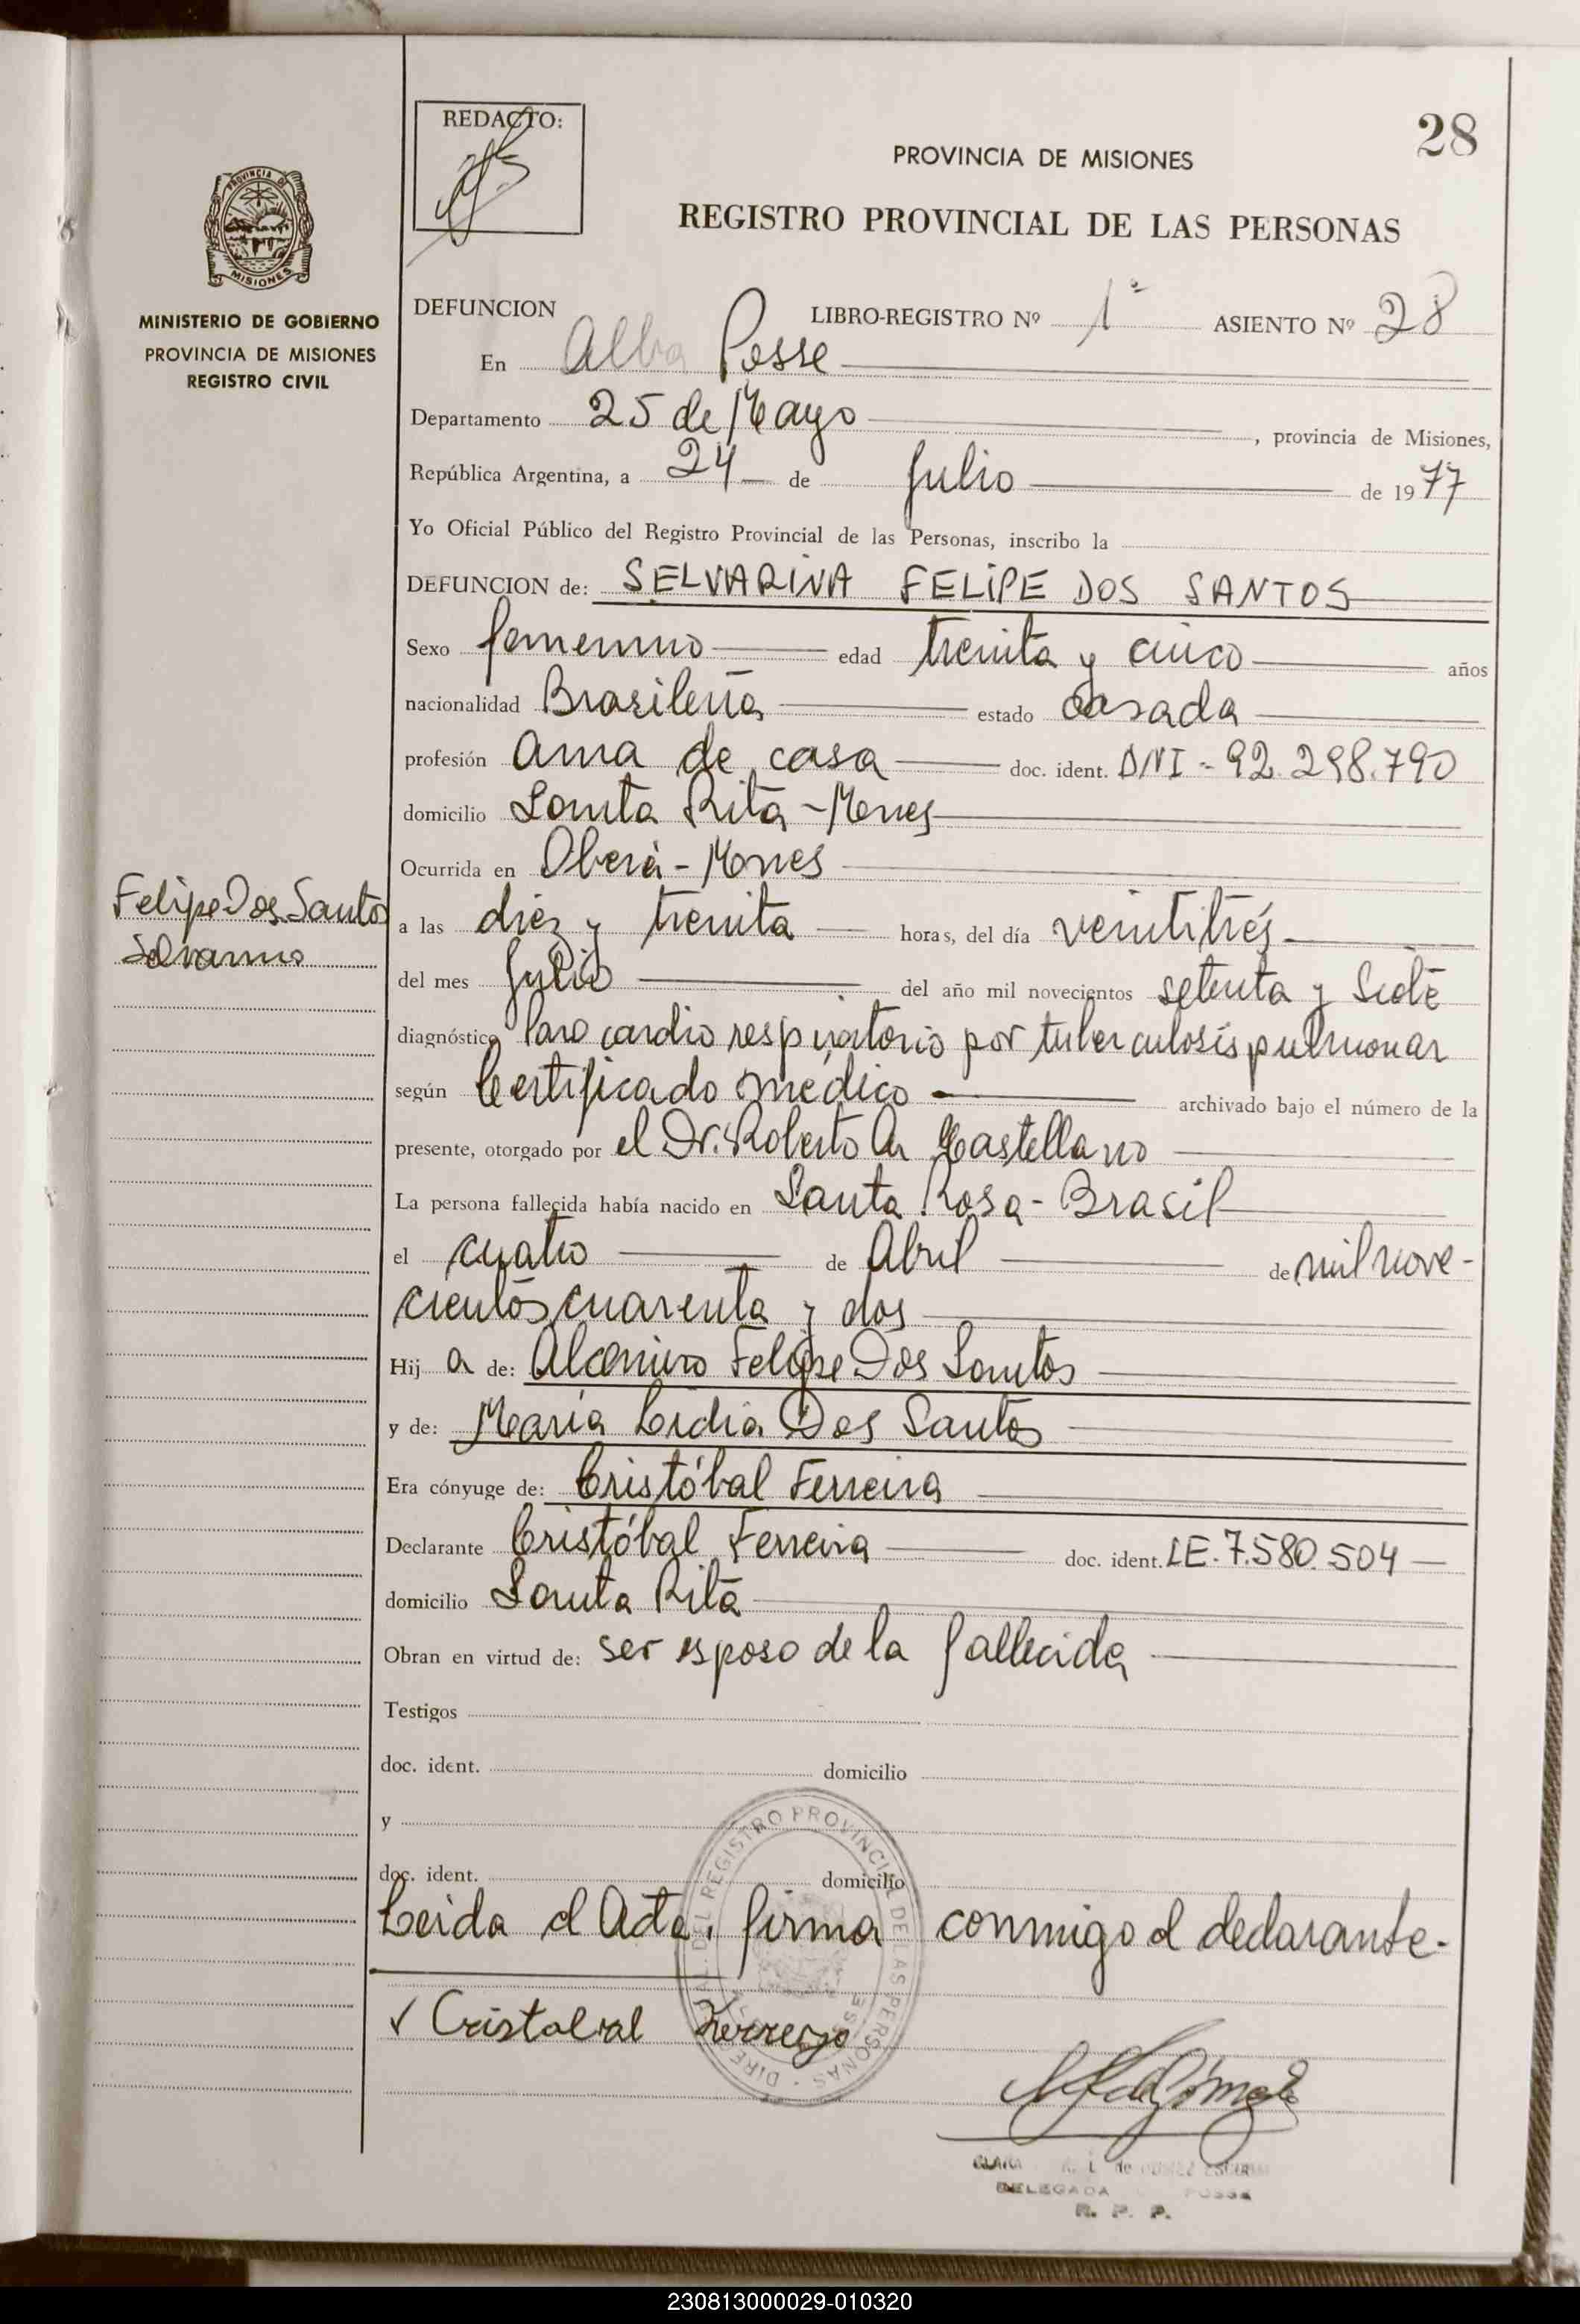 28
REDACTO:
PROVINCIA DE MISIONES
REGISTRO PROVINCIAL DE LAS PERSONAS
PROVINCIA DE
MISIONES
MINISTERIO DE GOBIERNO
PROVINCIA DE MISIONES
REGISTRO CIVIL
DEFUNCION LIBRO-REGISTRO Nº 1º ASIENTO Nº 28
En Alba Posse
Departamento 25 de Mayo, provincia de Misiones,
República Argentina, a 24 de Julio de 1977
Yo Oficial Público del Registro Provincial de las Personas, inscribo la
DEFUNCION de: SELVARINA FELIPE DOS SANTOS
Sexo femenino edad treinta y cinco años
nacionalidad Brasileña estado casada
profesión ama de casa doc. ident. DNI - 92.298.790
domicilio Santa Rita - Mnes
Ocurrida en Oberá - Mnes
Felipe Dos Santos
a las diez y treinta horas, del día veintitrés
del mes Julio del año mil novecientos setenta y siete
diagnóstico Paro cardio respiratorio por tuberculosis pulmonar
según Certificado médico archivado bajo el número de la
presente, otorgado por el Dr. Roberto A. Castellano
La persona fallecida había nacido en Santa Rosa - Brasil
el cuatro de Abril de mil nove-
cientos cuarenta y dos
Hija de: Felipe Dos Santos
y de: María Lidia Dos Santos
Era cónyuge de: Cristóbal Ferreira
Declarante Cristóbal Ferreira doc. ident. LE. 7.580.504
domicilio Santa Rita
Obran en virtud de: ser esposo de la fallecida
Testigos
doc. ident. domicilio
y
doc. ident. domicilio
Leida el Acta, firma conmigo el declarante.
DEL REGISTRO PROVINCIAL DE LAS PERSONAS
✓ Cristobal
DELEGADA POSSE
R. P. P.
230813000029-010320